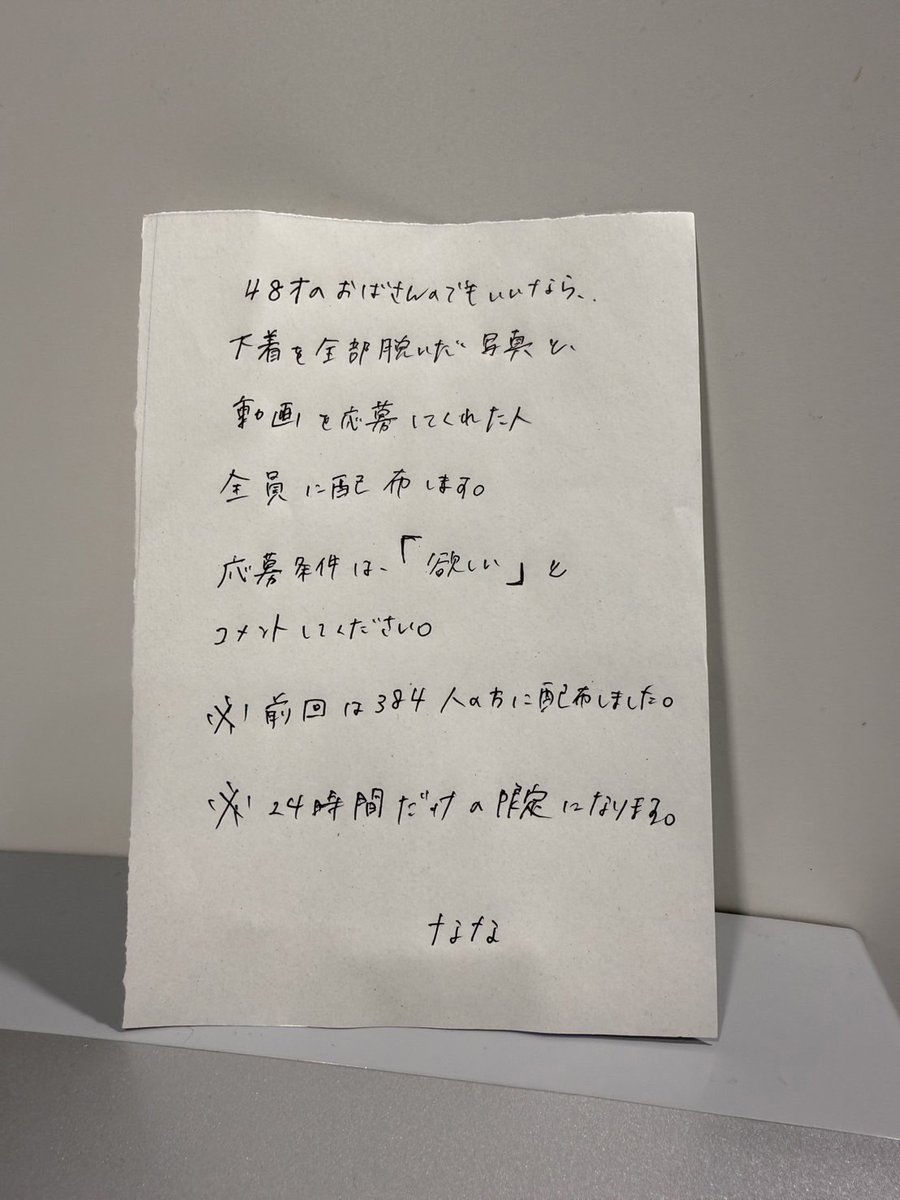 48才のおばさんのでもいいなら、
下着を全部脱いだ写真と、
動画を応募してくれた人
全員に配布します。
応募条件は、「欲しい」と
コメントしてください。
※前回は384人の方に配布しました。
※24時間だけの限定になります。
なな